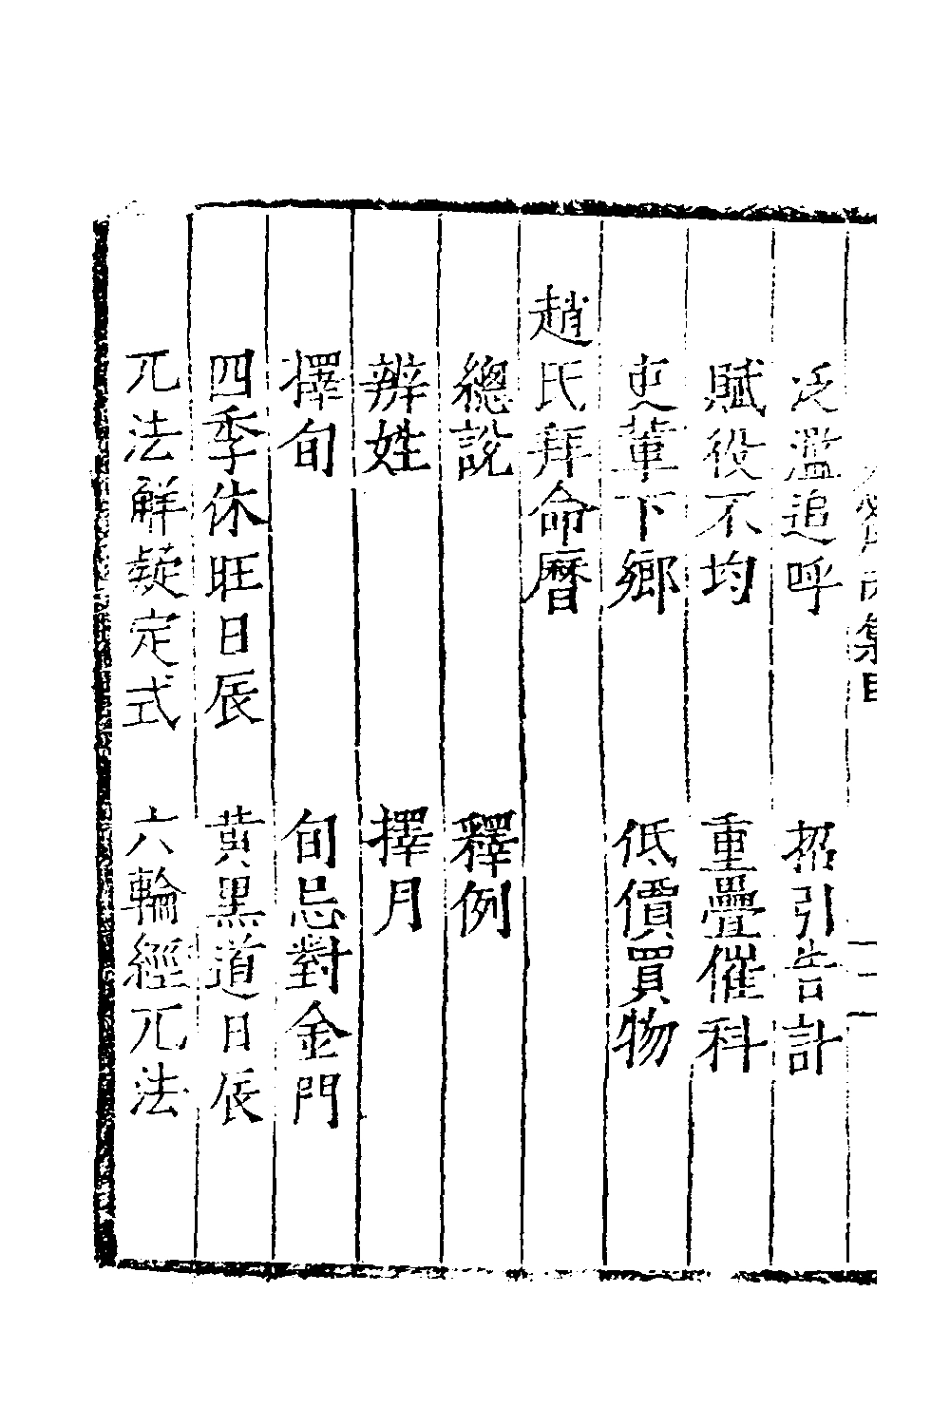 泛濫追呼　招引告訐
賦役不均　重疊催科
吏軰下鄉　低價買物
趙氏拜命曆
總説　釋例
辨姓　擇月
擇旬　旬忌對金門
四季休旺日辰　黃黑道日辰
兀法解疑定式　六輪經兀法